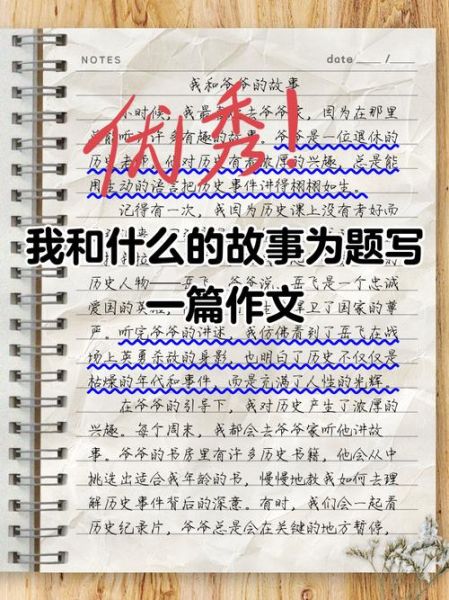 NOTES
date / /
我和爷爷的故事
优秀！
小时候，我最 去爷爷家，因为在那里
总能听 许多有趣的故事。爷爷是一位退休的
历史老师，他对历史有 浓厚的兴趣，总是能
用生动的语言把历史事件讲得栩栩如生。
记得有一次，我因为历史课上没有考好而
我和什么的故事为题写
一篇作文
历史人物——岳飞。爷爷说，岳飞是一个忠诚
爱国的英雄， 卫了国家的尊
严。听完爷爷的讲述，我仿佛看到了岳飞在战
场上英勇杀敌的身影，也明白了历史不仅仅是
枯燥的年代和事件，而是充满了人性的光辉。
在爷爷的引导下，我对历史产生了浓厚的
兴趣。每个周末，我都会去爷爷家听他讲故
事。爷爷的书房里有许多历史书籍，他会从中
挑选出适合我年龄的书，慢慢地教我如何去理
解历史事件背后的深意。有时，我们会一起看
历史纪录片，爷爷总是会在关键的地方暂停，